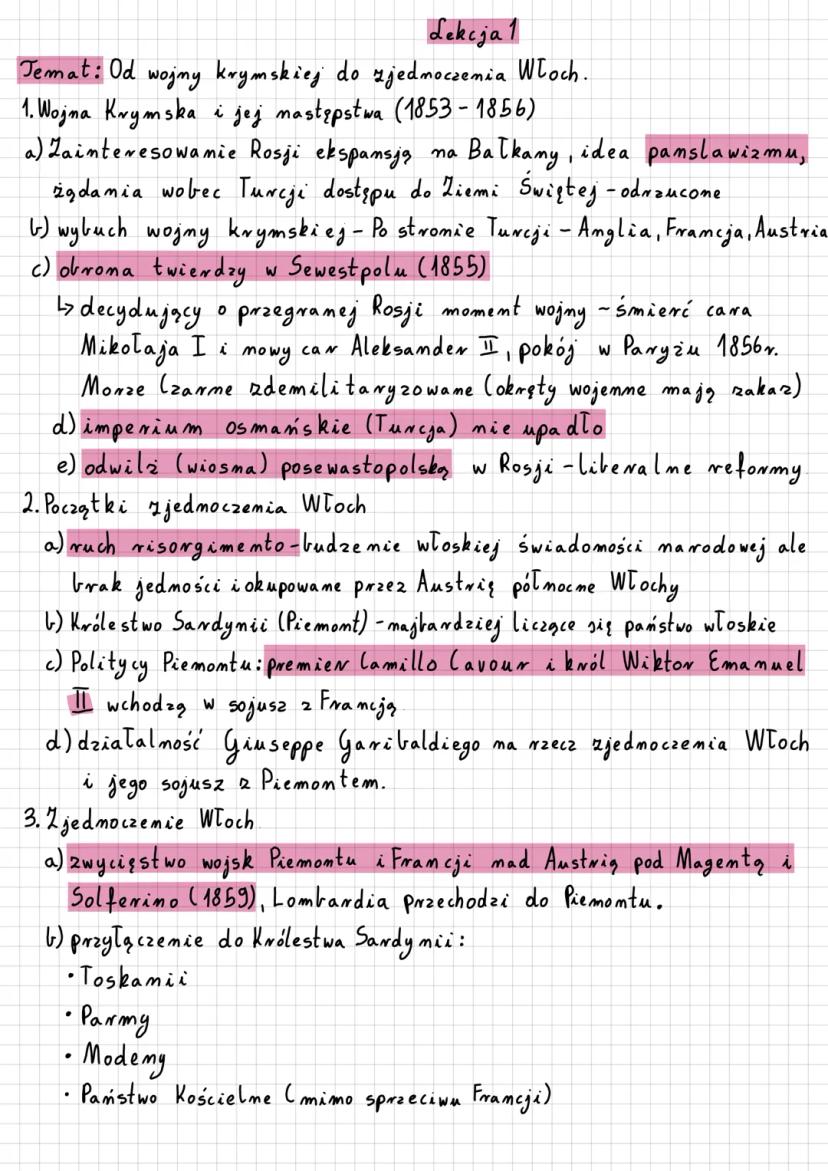 Lekcja 1
Temat: Od wojny krymskiej do zjednoczenia Włoch.
1. Wojna Krymska i jej następstwa (1853 - 1856)
a) Zainteresowanie Rosji ekspansją na Bałkany, idea panslawizmu,
żądania wobec Turcji dostępu do Ziemi Świętej - odrzucone
b) wybuch wojny krymskiej - Po stronie Turcji - Anglia, Francja, Austria
c) obrona twierdzy w Sewestpolu (1855)
↳ decydujący o przegranej Rosji moment wojny - śmierć cara
Mikołaja I i nowy car Aleksander II, pokój w Paryżu 1856r.
Morze Czarne zdemilitaryzowane (okręty wojenne mają zakaz)
d) imperium osmańskie (Turcja) nie upadło
e) odwilż (wiosna) posewastopolską w Rosji - liberalne reformy
2. Początki zjednoczenia Włoch
a) ruch risorgimento - budzenie włoskiej świadomości narodowej ale
brak jedności i okupowane przez Austrię północne Włochy
b) Królestwo Sardynii (Piemont) - najbardziej liczące się państwo włoskie
c) Politycy Piemontu: premier Camillo Cavour i król Wiktor Emanuel
II wchodzą w sojusz z Francją
d) działalność Giuseppe Garibaldiego na rzecz zjednoczenia Włoch
i jego sojusz z Piemontem.
3. Zjednoczenie Włoch
a) zwycięstwo wojsk Piemontu i Francji nad Austrią pod Magentą i
Solferino (1859), Lombardia przechodzi do Piemontu.
b) przyłączenie do Królestwa Sardynii:
• Toskanii
• Parmy
• Modeny
• Państwo Kościelne (mimo sprzeciwu Francji)